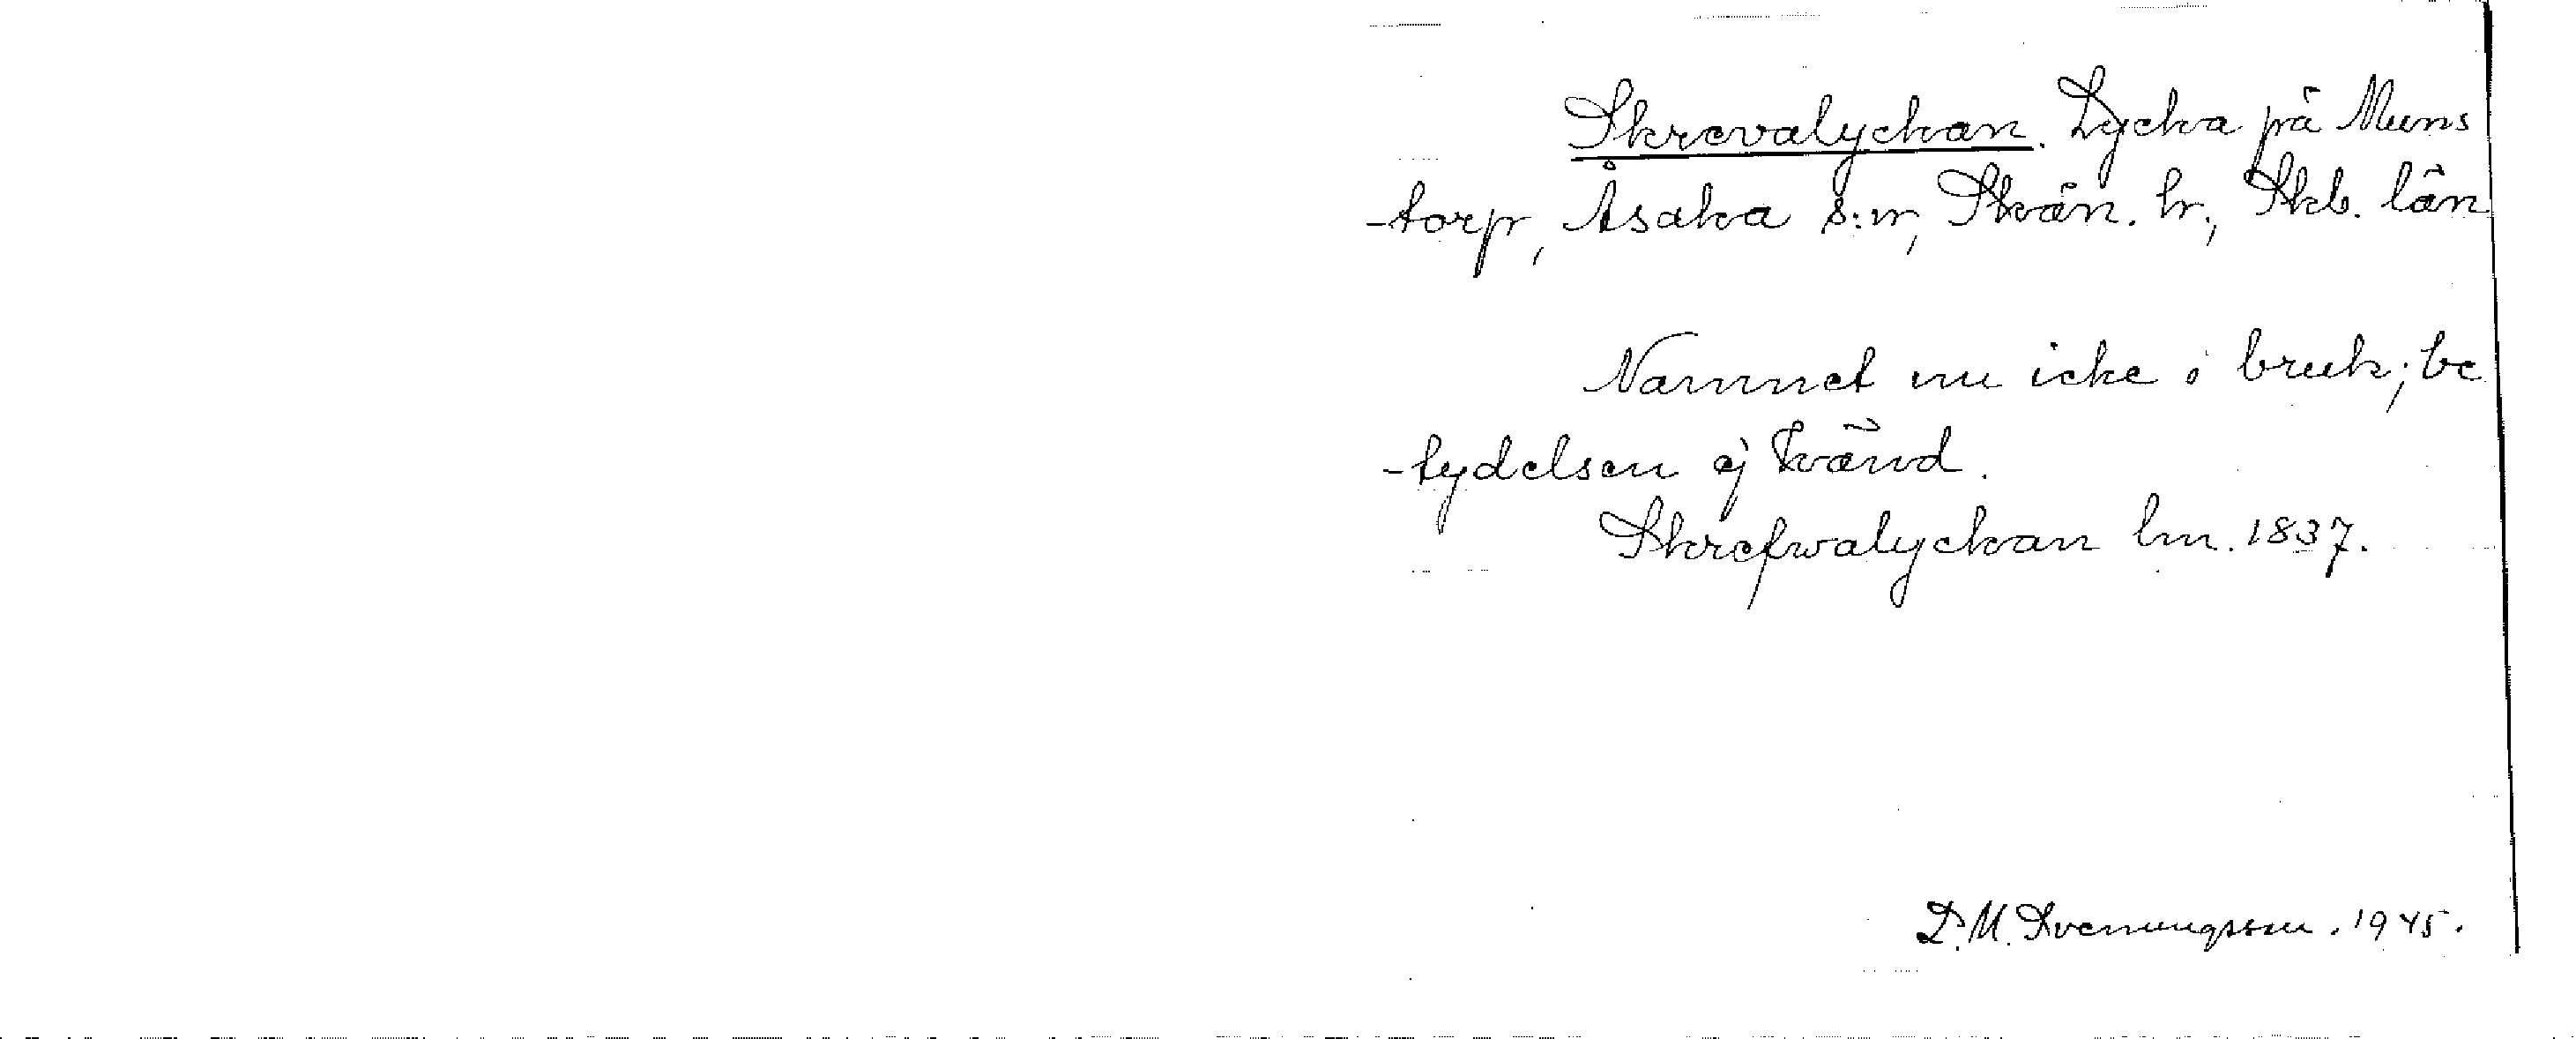 Skrevalyckan. Lycka på Muns
-torp, Åsaka s:n, Skån. hr., Skb. län
Namnet nu icke i bruk; be
-tydelsen ej känd.
Skrefwalyckan lm. 1837.
D. M. Svenungsson. 1945.